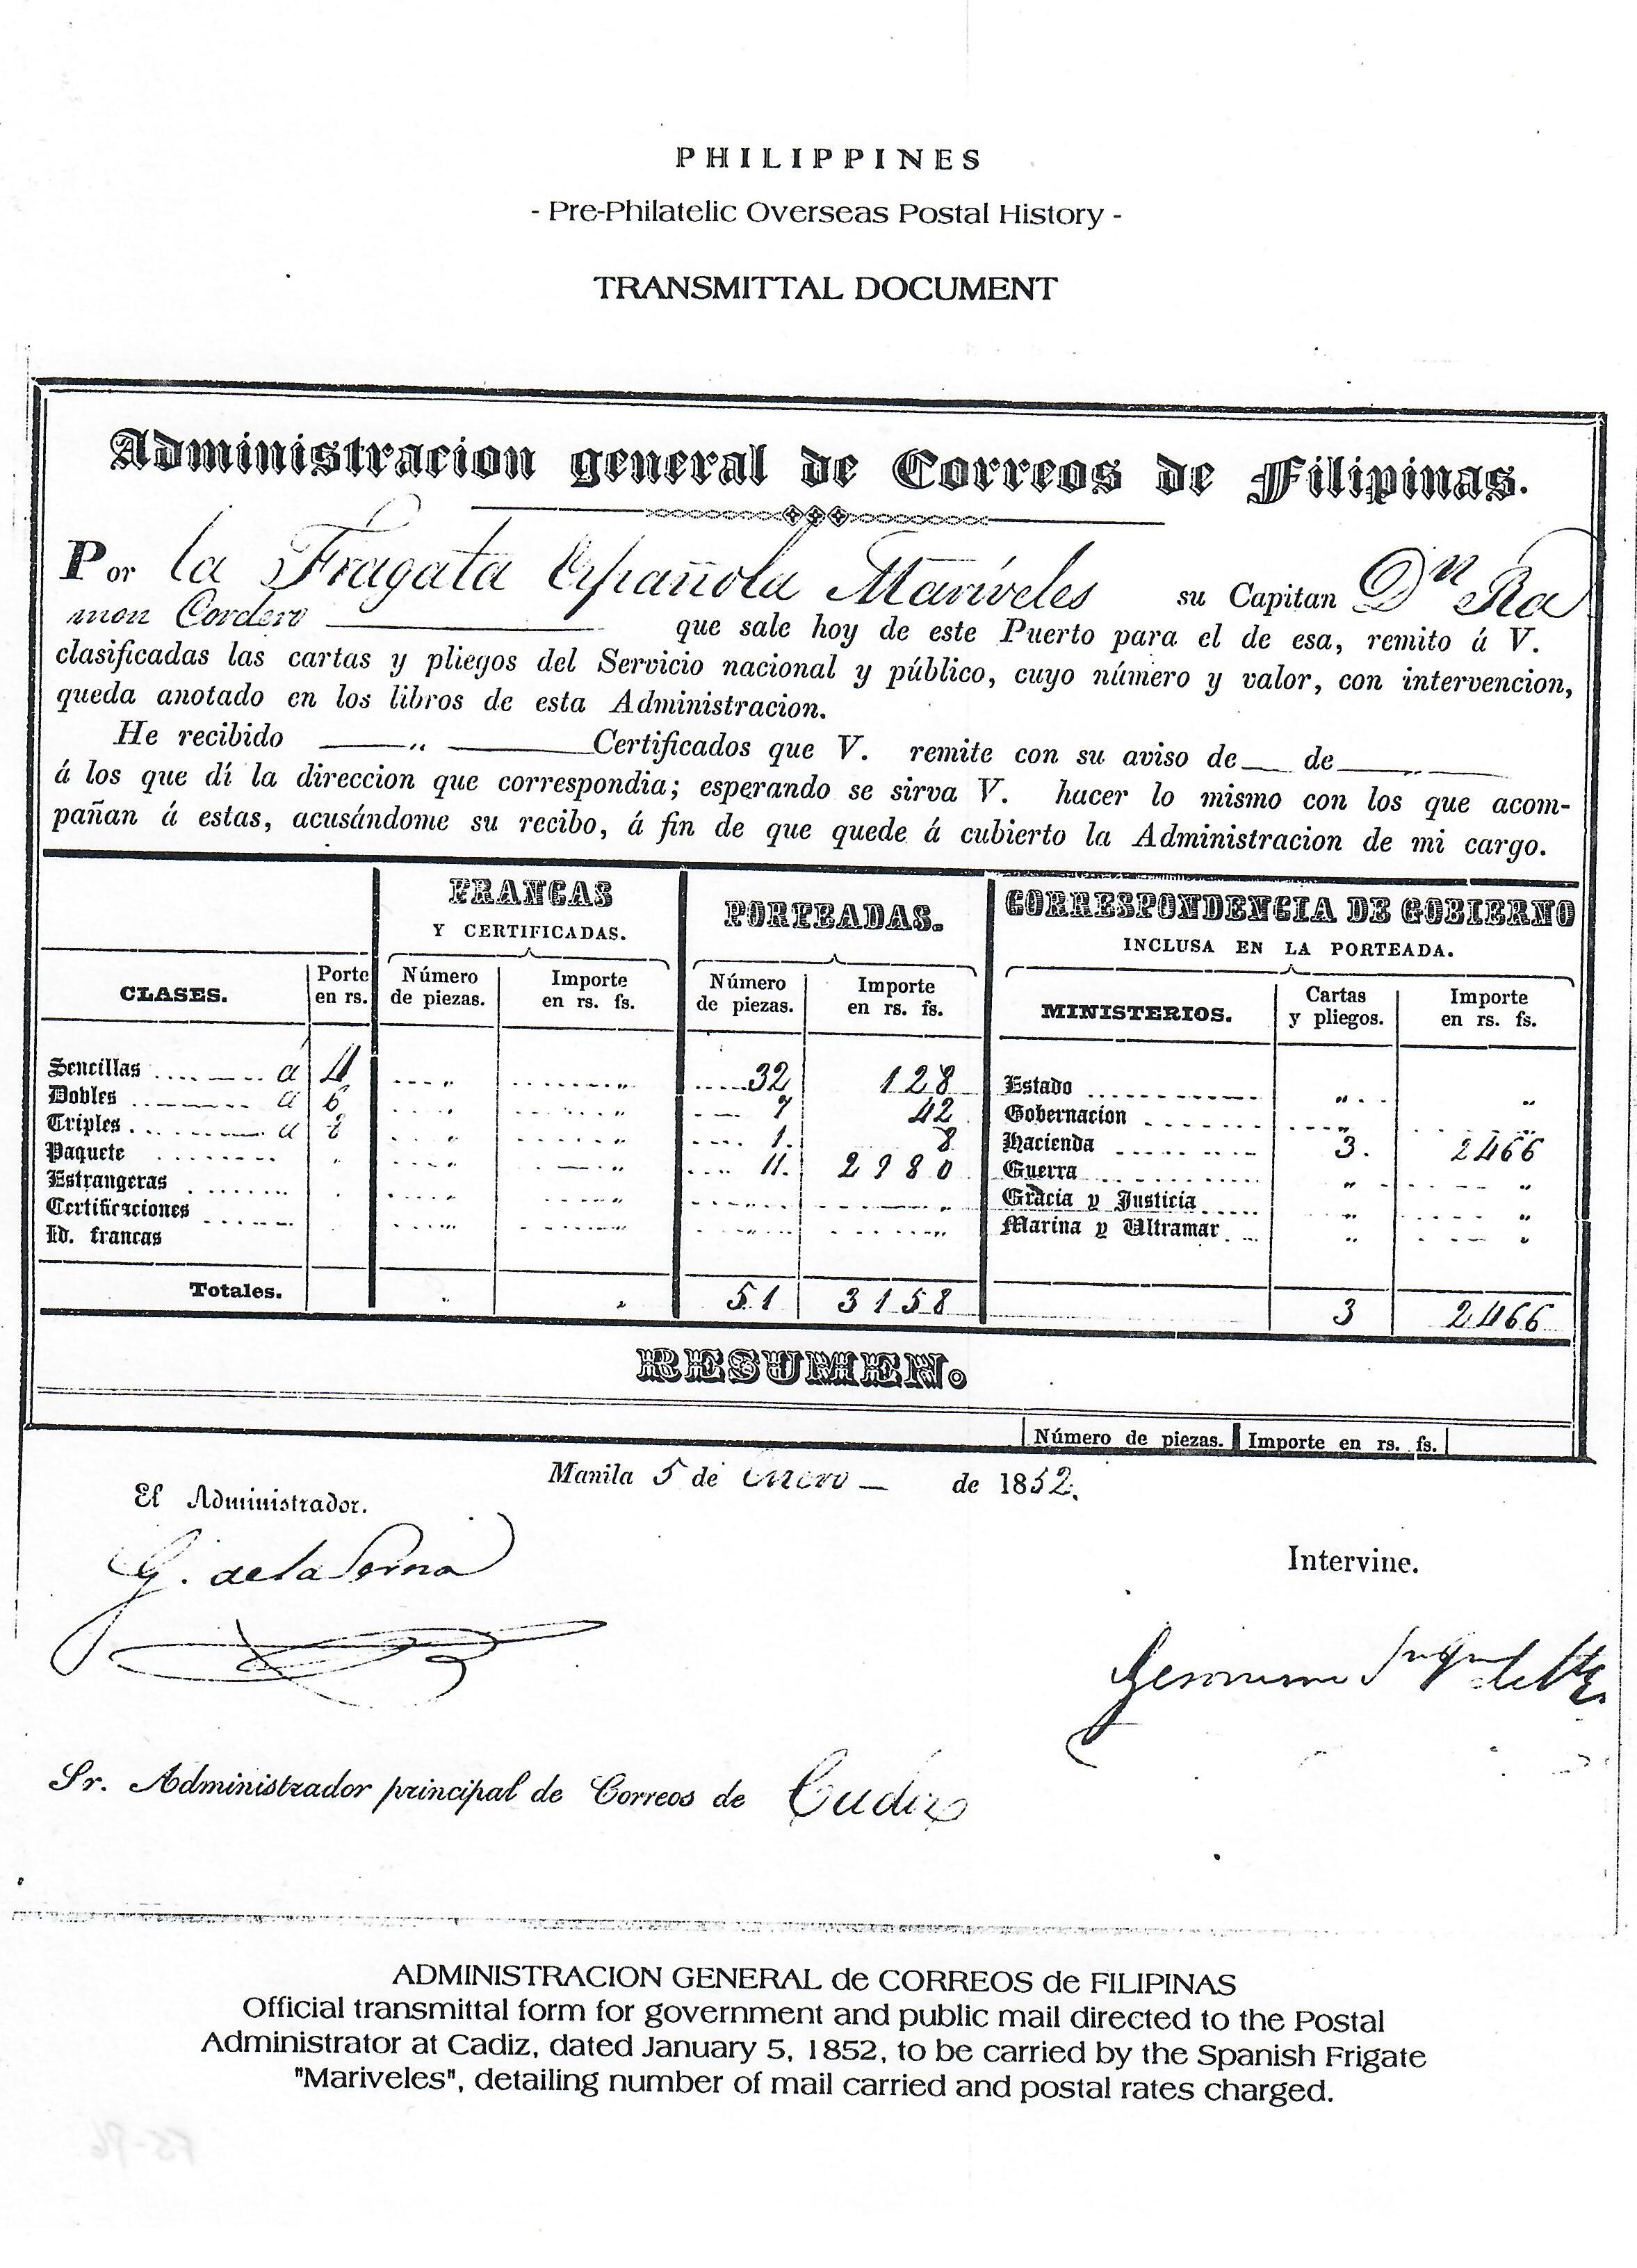 PHILIPPINES
- Pre-Philatelic Overseas Postal History -
TRANSMITTAL DOCUMENT
Administracion general de Correos de Filipinas.
Por la Fragata Española Mariveles su Capitan Dn Ra
mon Cordero que sale hoy de este Puerto para el de esa, remito á V.
clasificadas las cartas y pliegos del Servicio nacional y público, cuyo número y valor, con intervencion,
queda anotado en los libros de esta Administracion.
He recibido Certificados que V. remite con su aviso de de
á los que dí la direccion que correspondia; esperando se sirva V. hacer lo mismo con los que acom-
pañan á estas, acusándome su recibo, á fin de que quede á cubierto la Administracion de mi cargo.
FRANCAS PORTEADAS. CORRESPONDENCIA DE GOBIERNO
Y CERTIFICADAS. INCLUSA EN LA PORTEADA.
CLASES. Porte en rs. Número de piezas. Importe en rs. fs. Número de piezas. Importe en rs. fs. MINISTERIOS. Cartas y pliegos. Importe en rs. fs.
Sencillas á 4 32 128 Estado
Dobles á 6 7 42 Gobernacion
Triples á 8 1. 8 Hacienda 3. 2466
Paquete 11. 2980 Guerra
Estrangeras Gracia y Justicia
Certificaciones Marina y Ultramar
Id. francas
Totales. 51 3158 3 2466
RESUMEN.
Número de piezas. Importe en rs. fs.
Manila 5 de Enero de 1852.
El Administrador.
G. de la Serna
Intervine.
Sr. Administrador principal de Correos de Cadiz
ADMINISTRACION GENERAL de CORREOS de FILIPINAS
Official transmittal form for government and public mail directed to the Postal
Administrator at Cadiz, dated January 5, 1852, to be carried by the Spanish Frigate
"Mariveles", detailing number of mail carried and postal rates charged.